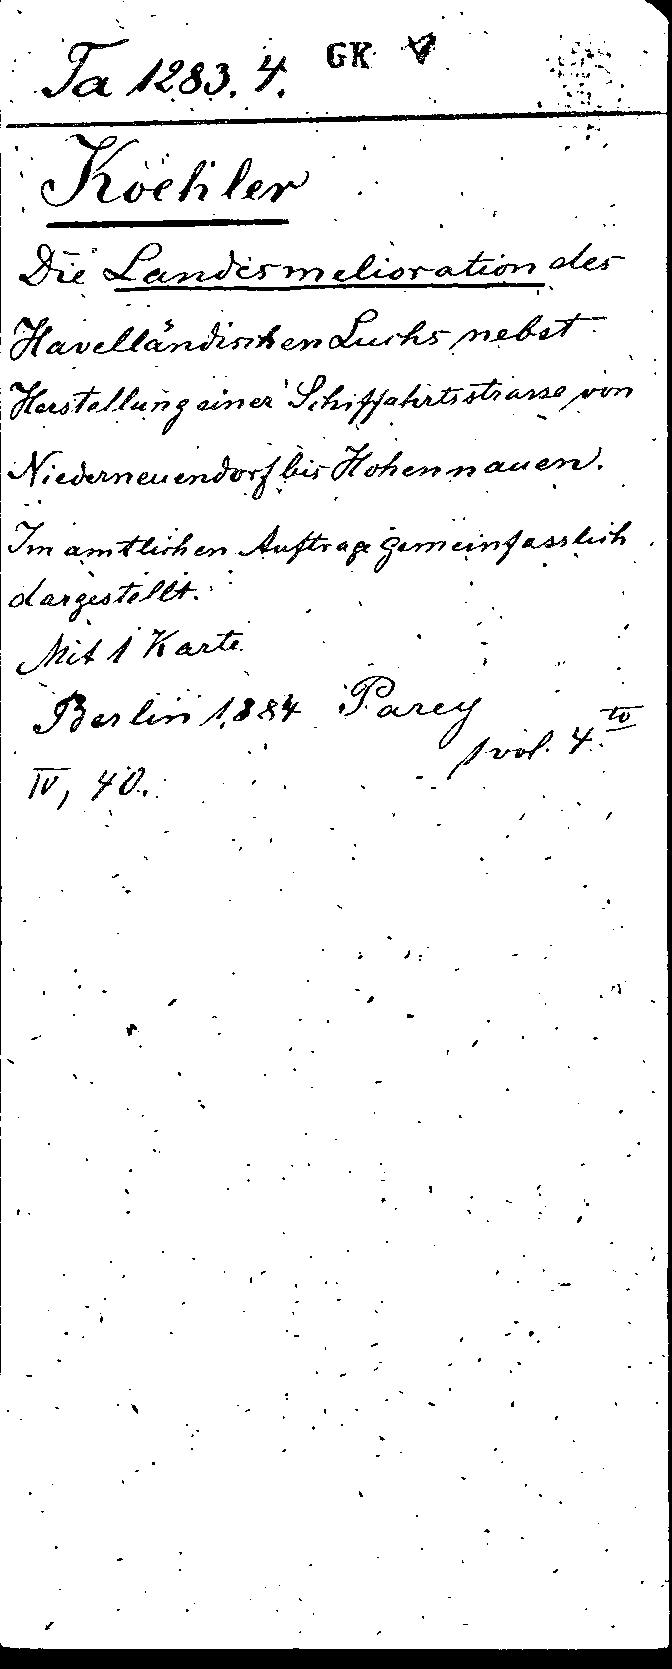 Ta 1283. 4. GK
Koehler
Die Landesmelioration des
Havelländischen Luchs nebst
Herstellung einer Schiffahrtsstrasse von
Niederneuendorf bis Hohennauen.
Im amtlichen Auftrage gemeinfasslich
dargestellt.
Mit 1 Karte
Berlin 1884 Parey
1 vol. 4.to
IV, 40.